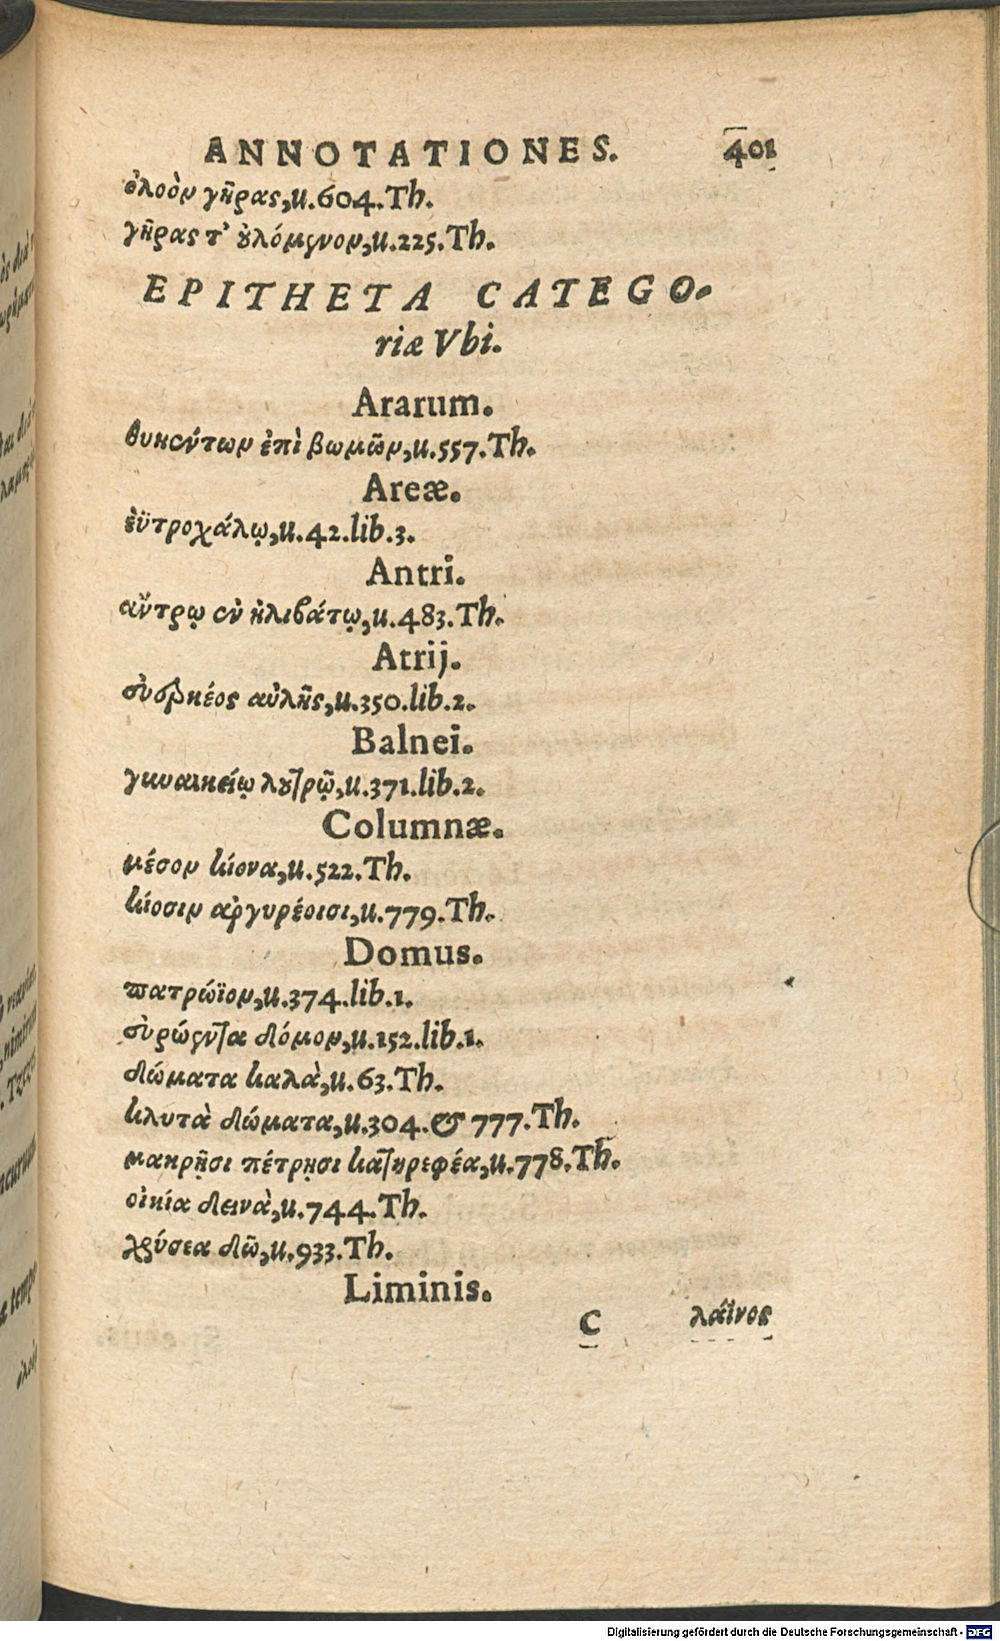 ANNOTATIONES. 401
ὀλοὸν γῆρας, u.604.Th.
γῆρας τ' ὀυλόμενον, u.225.Th.
EPITHETA CATEGO-
riæ Vbi.
Ararum.
θυηέντων ἐπὶ βωμῶν, u.557.Th.
Areæ.
ἐϋτροχάλῳ, u.42.lib.3.
Antri.
ἄντρῳ ἐν ἠλιβάτῳ, u.483.Th.
Atrij.
αὐλῆς, u.350.lib.2.
Balnei.
γυναικείῳ λουτρῷ, u.371.lib.2.
Columnæ.
μέσον κίονα, u.522.Th.
κίοσιν ἀργυρέοισι, u.779.Th.
Domus.
πατρώϊον, u.374.lib.1.
δόμον, u.152.lib.1.
δώματα καλὰ, u.63.Th.
κλυτὰ δώματα, u.304.& 777.Th.
μακρῇσι πέτρῃσι κατηρεφέα, u.778.Th.
οἰκία δεινὰ, u.744.Th.
χρύσεα δῶ, u.933.Th.
Liminis.
C λάϊνος
Digitalisierung gefördert durch die Deutsche Forschungsgemeinschaft - DFG